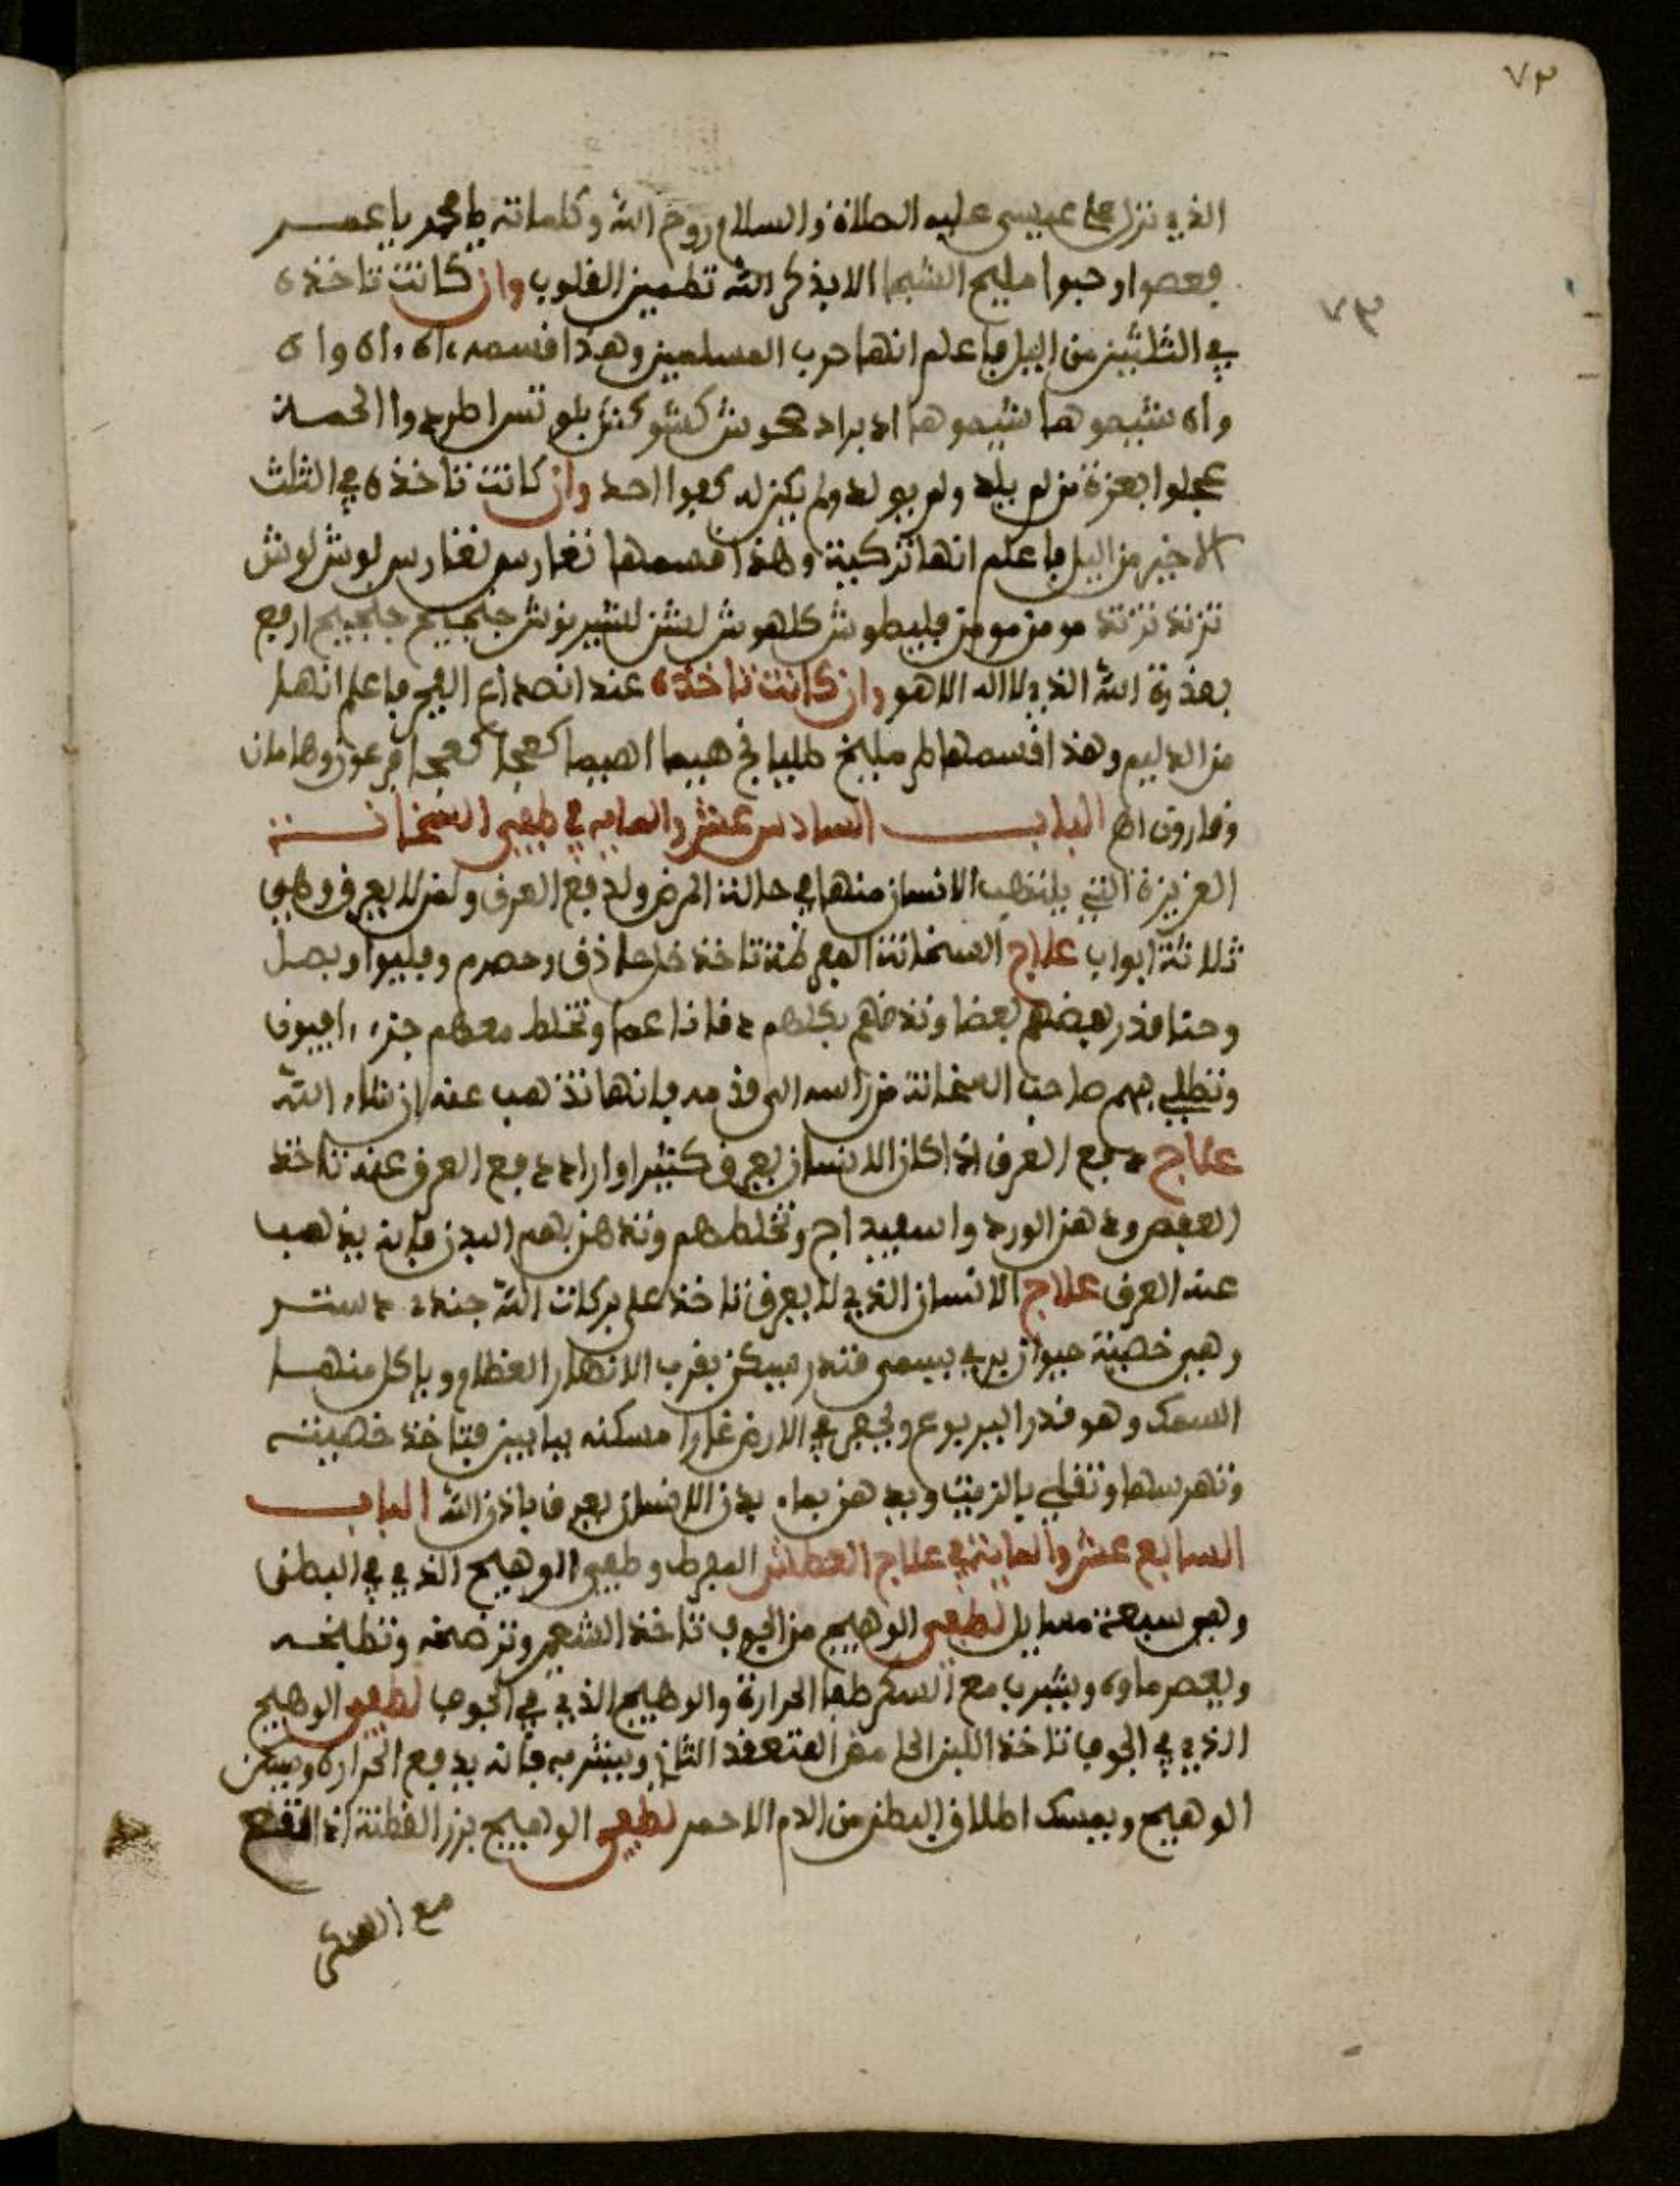 ٧٣
الذي نزل على عيسى عليه الصلاة والسلام روح الله وكلماته يا محمد يا عمـر
الا بذكر الله تطمين القلوب وان كانت تاخذه
٧٣
في الثلثين من اليل فاعلم انها حرب المسلمين وهذا قسمه اه واه واه
واه شيموها شيموها اطردوا الحمـة
عجلوا بعزة من لم يلد ولم يولد ولم يكن له كفوا احد وان كانت تاخذه في الثلث
الاخير من اليل فاعلم انها تركية وهذا قسمها نغارس نغارس لوش لوش
ارفع
بقدرة الله الذي لا اله الا هو وان كانت تاخذه عند انصداع الفجر فاعلم انها
من الديلم وهذا قسمها فرعون وهامان
وقارون اهـ البـاب السادس عشر والمايه في طفي السخانـة
العزيزة التي يلتهب الانسان منها في حالة المرض ولدفع العرق ولمن لا يعرق وهي
ثلاثة ابواب علاج السخانة المفرطة تاخذ خل حاذق وحصرم وفليو وبصل
وحنا قدر بعضهم بعضا وتدقهم بكلهم دقا ناعما وتخلط معهم جزء افيون
وتطلي بهم صاحب السخانة من راسه الى قدمه فانها تذهب عنه ان شاء الله
علاج دفع العرق اذا كان الانسان يعرق كثيرا واراد دفع العرق عنه تاخذ
العفص ودهن الورد واسفيداج وتخلطهم وتدهن بهم البدن فانه يذهب
عنه العرق علاج الانسان الذي لا يعرق تاخذ على بركات الله جنده دستـر
وهي خصية حيوان بري يسمى قندر يسكن بقرب الانهار العظام وياكل منهـا
السمك وهو قدر اليربوع ويحفر في الارض غارا مسكنه ببابين فتاخذ خصيتـه
وتهرسها وتقلي بالزيت ويدهن بماء بدن الانسان يعرق باذن الله البـاب
السابع عشر والماية في علاج العطش المفرط وطفي الوهيج الذي في البطن
وهي سبعة مسايل لطفي الوهيج من الجوف تاخذ الشعير وترضخه وتطبخـه
ويعصر ماوه ويشرب مع السكر طفا الحرارة والوهيج الذي في الجوف لطفي الوهيج
الذي في الجوف تاخذ اللبن الحامض المتعقد الثاني ويشربه فانه يدفع الحرارة ويسكن
الوهيج ويمسك اطلاق البطن من الدم الاحمر لطفي الوهيج بزر القطنة اذا انقع
مع